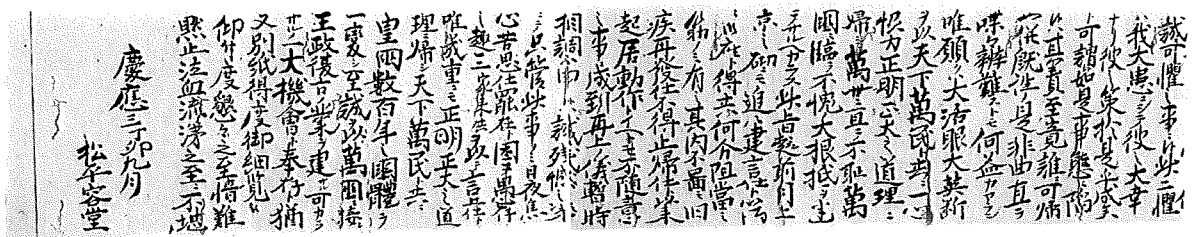 誠可懼ノ事ニ候此二懼ハ
我大患ニシテ彼ノ大幸
也彼ノ策於是乎成矣ト
可謂候如是事態ニ陥
候其責至竟誰可帰
併既往ノ是非曲直ヲ
喋々辨難ストモ何ノ益カアラン
唯願クハ大活眼大英断
ヲ以天下萬民ト共ニ一心
協力正明正大之道理ニ
帰シ萬世ニ亘テ不恥萬
國ニ臨テ不愧ノ大根柢ヲ建
此旨趣前月上
京之砌ニモ追々建言仕候心得
得共何分阻當之
筋ノミ有之其内不圖モ旧
疾再發仕不得止帰仕以来
起居動作ト雖モ不随意
之事ニ成到再上之儀暫時
相調不申ハ誠残憾之次第
ニテ只管此事ノミ日夜焦
心苦思仕罷在因テ愚存
之趣一二家来共ヲ以言上仕候
唯幾重ニモ正明正大之道
理ニ帰シ天下萬民ト共ニ
皇國數百年之國體ヲ
一變シ至誠ヲ以萬國ニ接シ
王政復古之業ヲ建
一大機會ト奉存候猶
又別紙得度御細覧被
仰付度懇々之至情難
黙止泣血流涕之至ニ不堪
慶應三丁卯九月
松平容堂